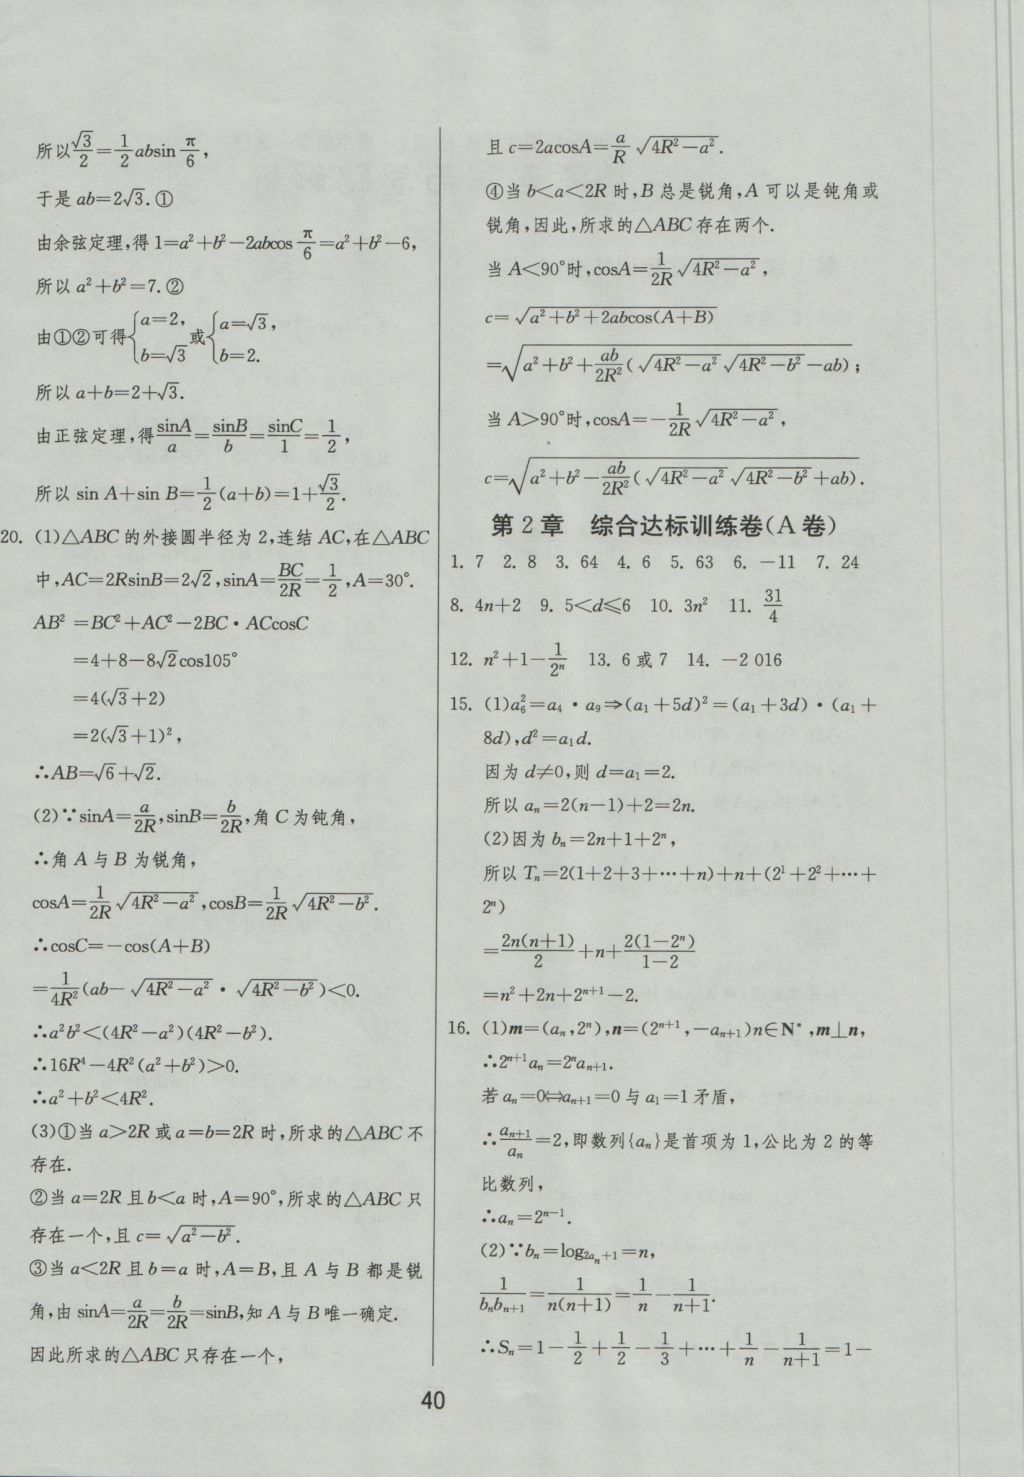 所以√3/2=1/2 absin π/6,
于是 ab=2√3.①
由余弦定理,得 1=a²+b²−2abcos π/6=a²+b²−6,
所以 a²+b²=7.②
由①②可得{a=2, b=√3 或{a=√3, b=2.
所以 a+b=2+√3.
由正弦定理,得 sinA/a=sinB/b=sinC/1=1/2,
所以 sin A+sin B=1/2(a+b)=1+√3/2.
20. (1)△ABC 的外接圆半径为 2,连结 AC,在△ABC
中,AC=2RsinB=2√2,sinA=BC/2R=1/2,A=30°.
AB²=BC²+AC²−2BC·ACcosC
=4+8−8√2cos105°
=4(√3+2)
=2(√3+1)²,
∴AB=√6+√2.
(2)∵sinA=a/2R,sinB=b/2R,角 C 为钝角,
∴角 A 与 B 为锐角,
cosA=1/2R √(4R²−a²),cosB=1/2R √(4R²−b²).
∴cosC=−cos(A+B)
=1/4R²(ab−√(4R²−a²)·√(4R²−b²))<0.
∴a²b²<(4R²−a²)(4R²−b²).
∴16R⁴−4R²(a²+b²)>0.
∴a²+b²<4R².
(3)①当 a>2R 或 a=b=2R 时,所求的△ABC 不
存在.
②当 a=2R 且 b<a 时,A=90°,所求的△ABC 只
存在一个,且 c=√(a²−b²).
③当 a<2R 且 b=a 时,A=B,且 A 与 B 都是锐
角,由 sinA=a/2R=b/2R=sinB,知 A 与 B 唯一确定.
因此所求的△ABC 只存在一个,
且 c=2acosA=a/R √(4R²−a²).
④当 b<a<2R 时,B 总是锐角,A 可以是钝角或
锐角,因此,所求的△ABC 存在两个.
当 A<90°时,cosA=1/2R √(4R²−a²),
c=√(a²+b²+2abcos(A+B))
=√(a²+b²+ab/2R²(√(4R²−a²)√(4R²−b²)−ab));
当 A>90°时,cosA=−1/2R √(4R²−a²),
c=√(a²+b²−ab/2R²(√(4R²−a²)√(4R²−b²)+ab)).
第 2 章 综合达标训练卷(A 卷)
1. 7 2. 8 3. 64 4. 6 5. 63 6. −11 7. 24
8. 4n+2 9. 5<d≤6 10. 3n² 11. 31/4
12. n²+1−1/2ⁿ 13. 6 或 7 14. −2 016
15. (1)a₆²=a₄·a₉⇒(a₁+5d)²=(a₁+3d)·(a₁+
8d),d²=a₁d.
因为 d≠0,则 d=a₁=2.
所以 aₙ=2(n−1)+2=2n.
(2)因为 bₙ=2n+1+2ⁿ,
所以 Tₙ=2(1+2+3+···+n)+n+(2¹+2²+···+
2ⁿ)
=2n(n+1)/2+n+2(1−2ⁿ)/(1−2)
=n²+2n+2ⁿ⁺¹−2.
16. (1)m=(aₙ,2ⁿ),n=(2ⁿ⁺¹,−aₙ₊₁)n∈N*,m⊥n,
∴2ⁿ⁺¹aₙ=2ⁿaₙ₊₁.
若 aₙ=0⇔aₙ₊₁=0 与 a₁=1 矛盾,
∴aₙ₊₁/aₙ=2,即数列{aₙ}是首项为 1,公比为 2 的等
比数列,
∴aₙ=2ⁿ⁻¹.
(2)∵bₙ=log₂aₙ+1=n,
1/(bₙbₙ₊₁)=1/(n(n+1))=1/n−1/(n+1).
∴Sₙ=1−1/2+1/2−1/3+···+1/n−1/(n+1)=1−
40